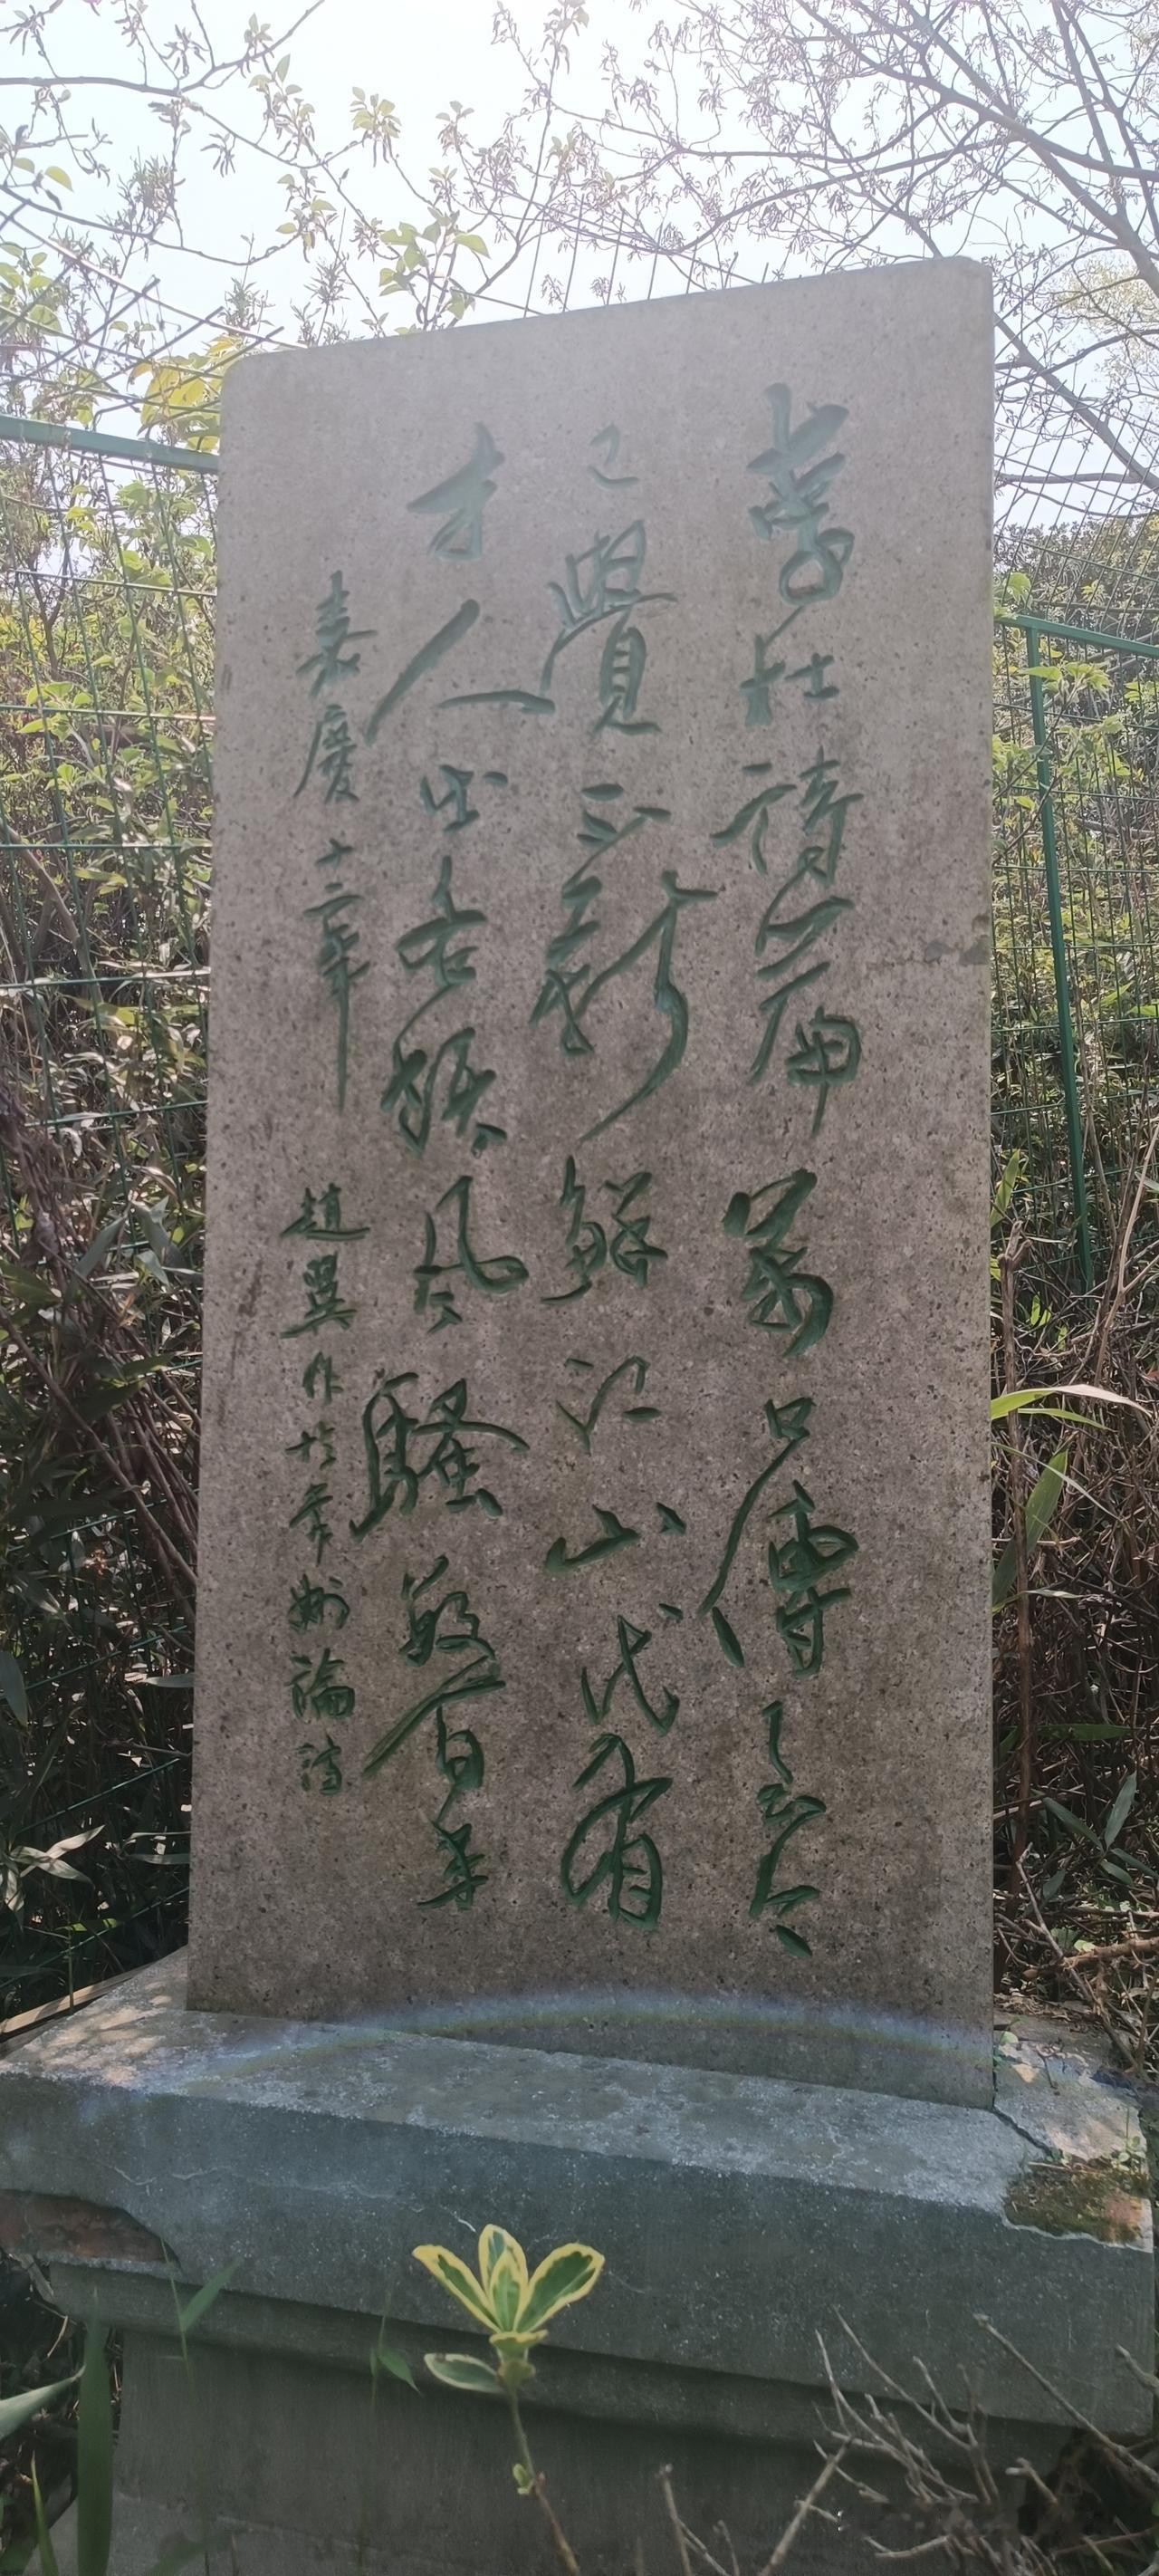 李杜詩篇萬口傳至今
已覺不新鮮江山代有
才人出各領風騷數百年
嘉慶十二年 趙翼作於常州論詩